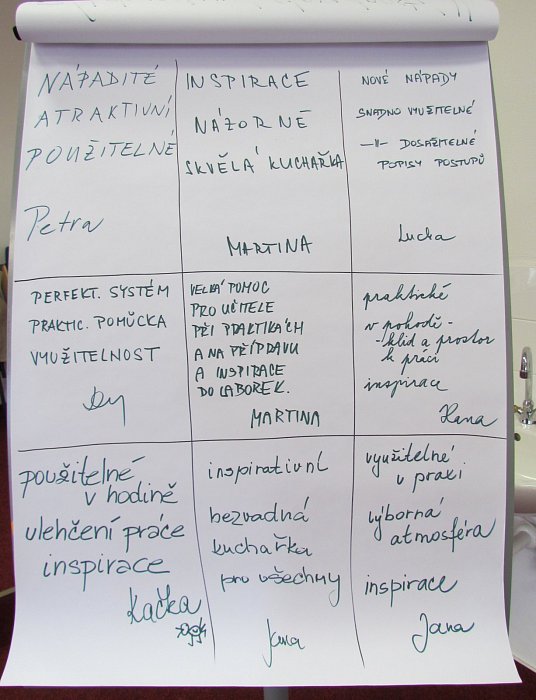 NÁPADITÉ
ATRAKTIVNÍ
POUŽITELNÉ
Petra
INSPIRACE
NÁZORNĚ
SKVĚLÁ KUCHAŘKA
MARTINA
NOVÉ NÁPADY
SNADNO VYUŽITELNÉ
—"— DOSAŽITELNÉ
POPISY POSTUPŮ
Lucka
PERFEKT. SYSTÉM
PRAKTIC. POMŮCKA
VYUŽITELNOST
VELKÁ POMOC
PRO UČITELE
PŘI PRAKTIKÁCH
A NA PŘÍPRAVU
A INSPIRACE
DO LABOREK.
MARTINA
praktické
v pohodě -
- klid a prostor
k práci
inspirace
Hana
použitelné
v hodině
ulehčení práce
inspirace
Kačka
inspirativní
bezvadná
kuchařka
pro všechny
Jana
využitelné
v praxi
výborná
atmosféra
inspirace
Jana